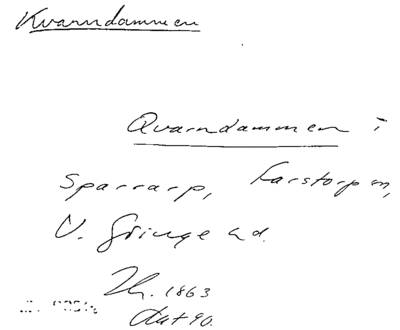 Kvarndammen
Qvarndammen i
Sparrarp, Farstorp sn,
V. Göinge hd.
1863